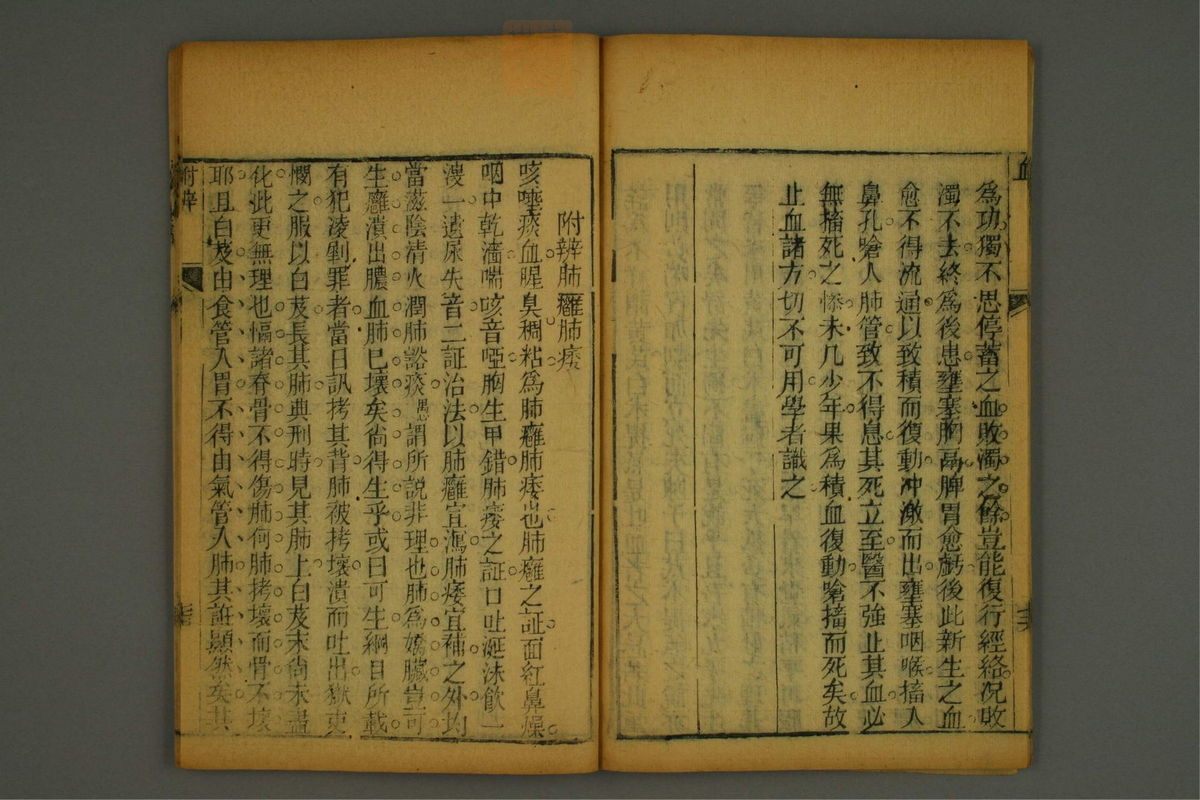 為功獨不思停蓄之血敗濁之餘豈能復行經絡况敗
濁不去終為後患壅塞胸鬲脾胃愈虧後此新生之血
愈不得流通以致積而復動冲激而出壅塞咽喉搐入
鼻孔嗆入肺管致不得息其死立至醫不強止其血必
無搐死之慘未几少年果為積血復動嗆搐而死矣故
止血諸方切不可用學者識之
附辨肺癰肺痿
咳唾痰血腥臭稠粘為肺癰肺痿也肺癰之証面紅鼻燥
咽中乾濇喘咳音啞胸生甲錯肺痿之証口吐涎沫飲一
溲一遺尿失音二証治法以肺癰宜瀉肺痿宜補之外均
當滋陰清火潤肺豁痰愚謂所説非理也肺為嬌臟豈可
生癰潰出膿血肺已壞矣尙得生乎或曰可生綱目所載
有犯凌剝罪者當日訊拷其背肺被拷壞潰而吐出獄吏
憫之服以白芨長其肺典刑時見其肺上白芨末尙未盡
化此更無理也愊諸脊骨不得傷肺何肺拷壞而骨不壞
耶且白芨由食管入胃不得由氣管入肺其誑顯然矣其
附辨
血